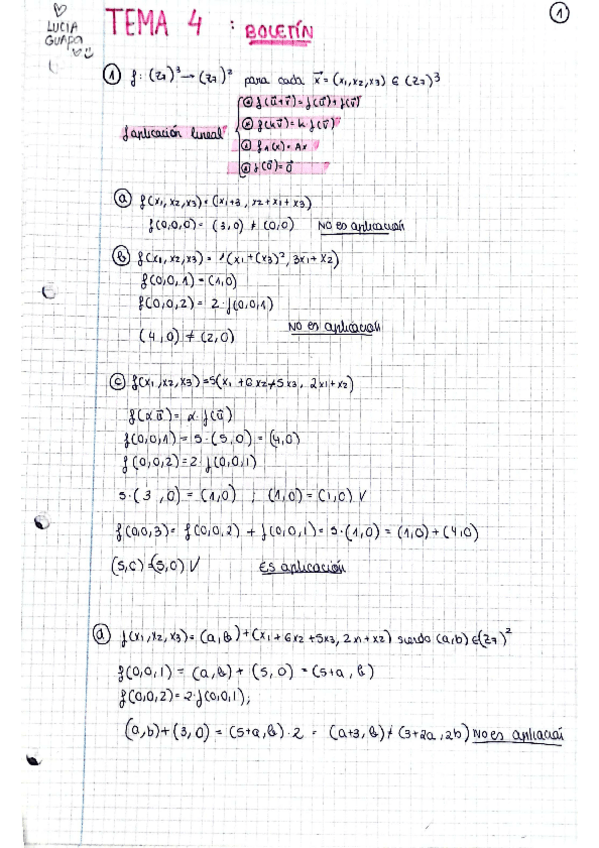 LUCIA
GUAPA
TEMA 4 : BOLETÍN
1
① f: (Z₇)³ → (Z₇)² para cada x⃗ = (x₁,x₂,x₃) ∈ (Z₇)³
f aplicación lineal
f(u⃗+v⃗) = f(u⃗) + f(v⃗)
f(kv⃗) = k·f(v⃗)
f₁(x) = Ax
f(0⃗) = 0⃗
ⓐ f(x₁,x₂,x₃) = (x₁+3, x₂+x₁+x₃)
f(0,0,0) = (3,0) ≠ (0,0) NO es aplicación
ⓑ f(x₁,x₂,x₃) = (x₁+(x₃)², 3x₁+x₂)
f(0,0,1) = (1,0)
f(0,0,2) = 2·f(0,0,1)
(4,0) ≠ (2,0) NO es aplicación
ⓒ f(x₁,x₂,x₃) = 5(x₁+6x₂+5x₃, 2x₁+x₂)
f(αu⃗) = α·f(u⃗)
f(0,0,1) = 5·(5,0) = (4,0)
f(0,0,2) = 2·f(0,0,1)
5·(3,0) = (1,0) ; (1,0) = (1,0) √
f(0,0,3) = f(0,0,2) + f(0,0,1) = 5·(1,0) = (1,0) + (4,0)
(5,0) = (5,0) √ ES aplicación
ⓓ f(x₁,x₂,x₃) = (a,b) + (x₁+6x₂+5x₃, 2x₁+x₂) siendo (a,b) ∈ (Z₇)²
f(0,0,1) = (a,b) + (5,0) = (5+a, b)
f(0,0,2) = 2·f(0,0,1);
(a,b)+(3,0) = (5+a, b)·2 = (a+3, b) ≠ (3+2a, 2b) NO es aplicación